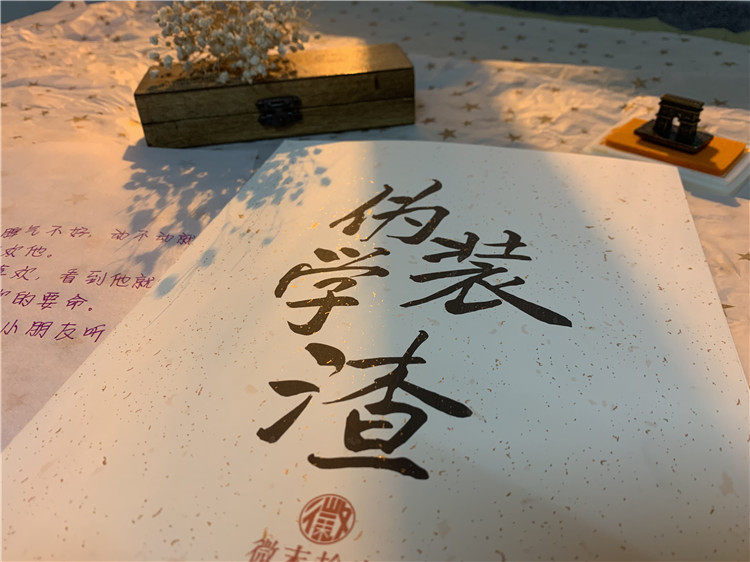 脾气不好，动不动就
欢他。
喜欢，看到他就
的要命。
小朋友听
伪装
学渣
微